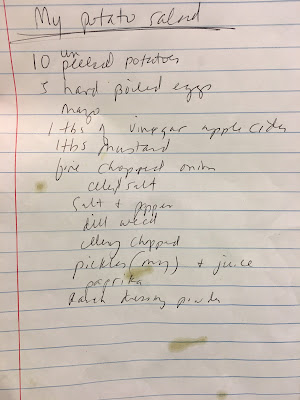 My potato salad
un
10 peeled potatoes
5 hard boiled eggs
Mayo
1 tbs of vinegar apple cider
1 tbs mustard
fine chopped onion
celery salt
Salt + pepper
dill weed
celery chopped
pickles (my) + juice
paprika
Ranch dressing powder